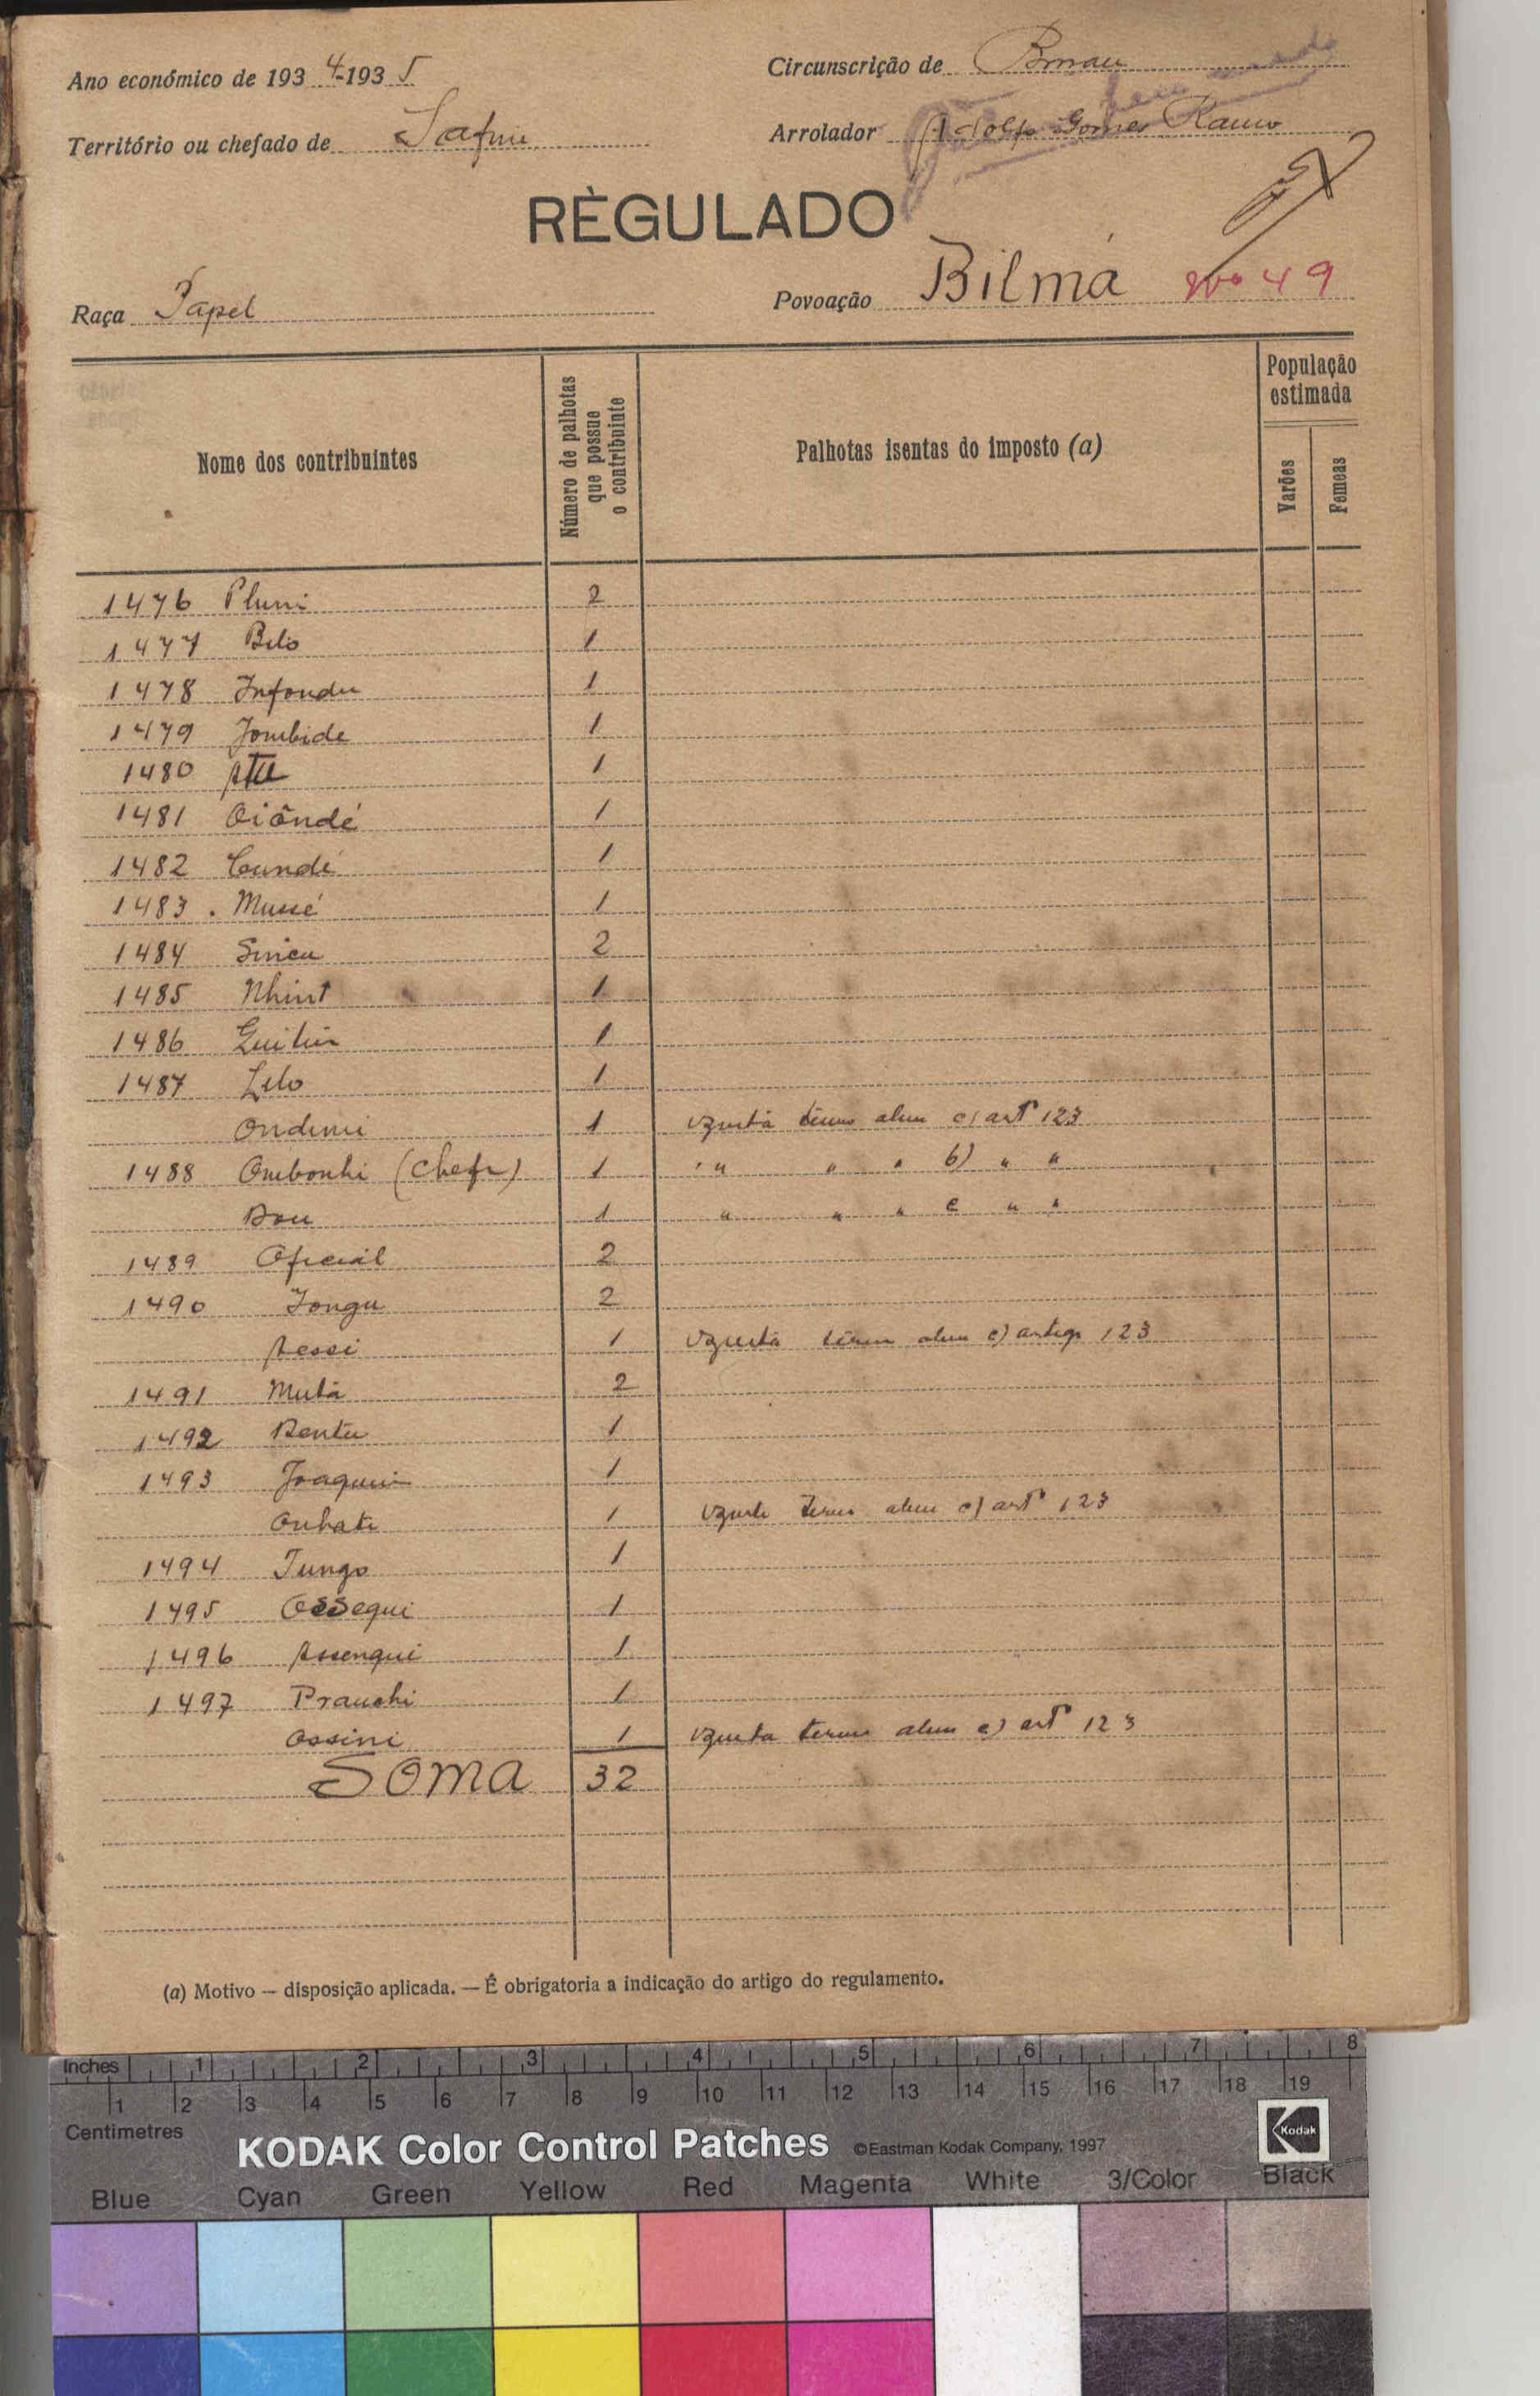 Ano económico de 1934-1935
Circunscrição de Bissau
Território ou chefado de Safim
Arrolador Adolfo Gomes Ramos
RÈGULADO
Raça Papel
Povoação Bilmá nº 49
Nome dos contribuintes
Número de palhotas que possue o contribuinte
Palhotas isentas do imposto (a)
População estimada
Varões
Femeas
1476 Pluni 2
1477 Bilo 1
1478 Infonda 1
1479 Jombide 1
1480 1
1481 Oiôndé 1
1482 Cundé 1
1483 . Mussé 1
1484 2
1485 Nhint 1
1486 1
1487 Lilo 1
Ondimi 1 c) artº 123
1488 Ombonhi (chefe) 1 " " " b) " "
Dou 1 " " " c " "
1489 Oficial 2
1490 Iongu 2
Assi 1 c) artigo 123
1491 Mutá 2
1492 Bentu 1
1493 Joaquim 1
Onhate 1 c) artº 123
1494 Tungo 1
1495 Ossequi 1
1496 Assenqui 1
1497 Prauchi 1
Ossini 1 c) artº 123
SOMA 32
(a) Motivo — disposição aplicada. — É obrigatoria a indicação do artigo do regulamento.
Inches 1 2 3 4 5 6 7 8
1 2 3 4 5 6 7 8 9 10 11 12 13 14 15 16 17 18 19
Centimetres
KODAK Color Control Patches ©Eastman Kodak Company, 1997 Kodak
Blue Cyan Green Yellow Red Magenta White 3/Color Black